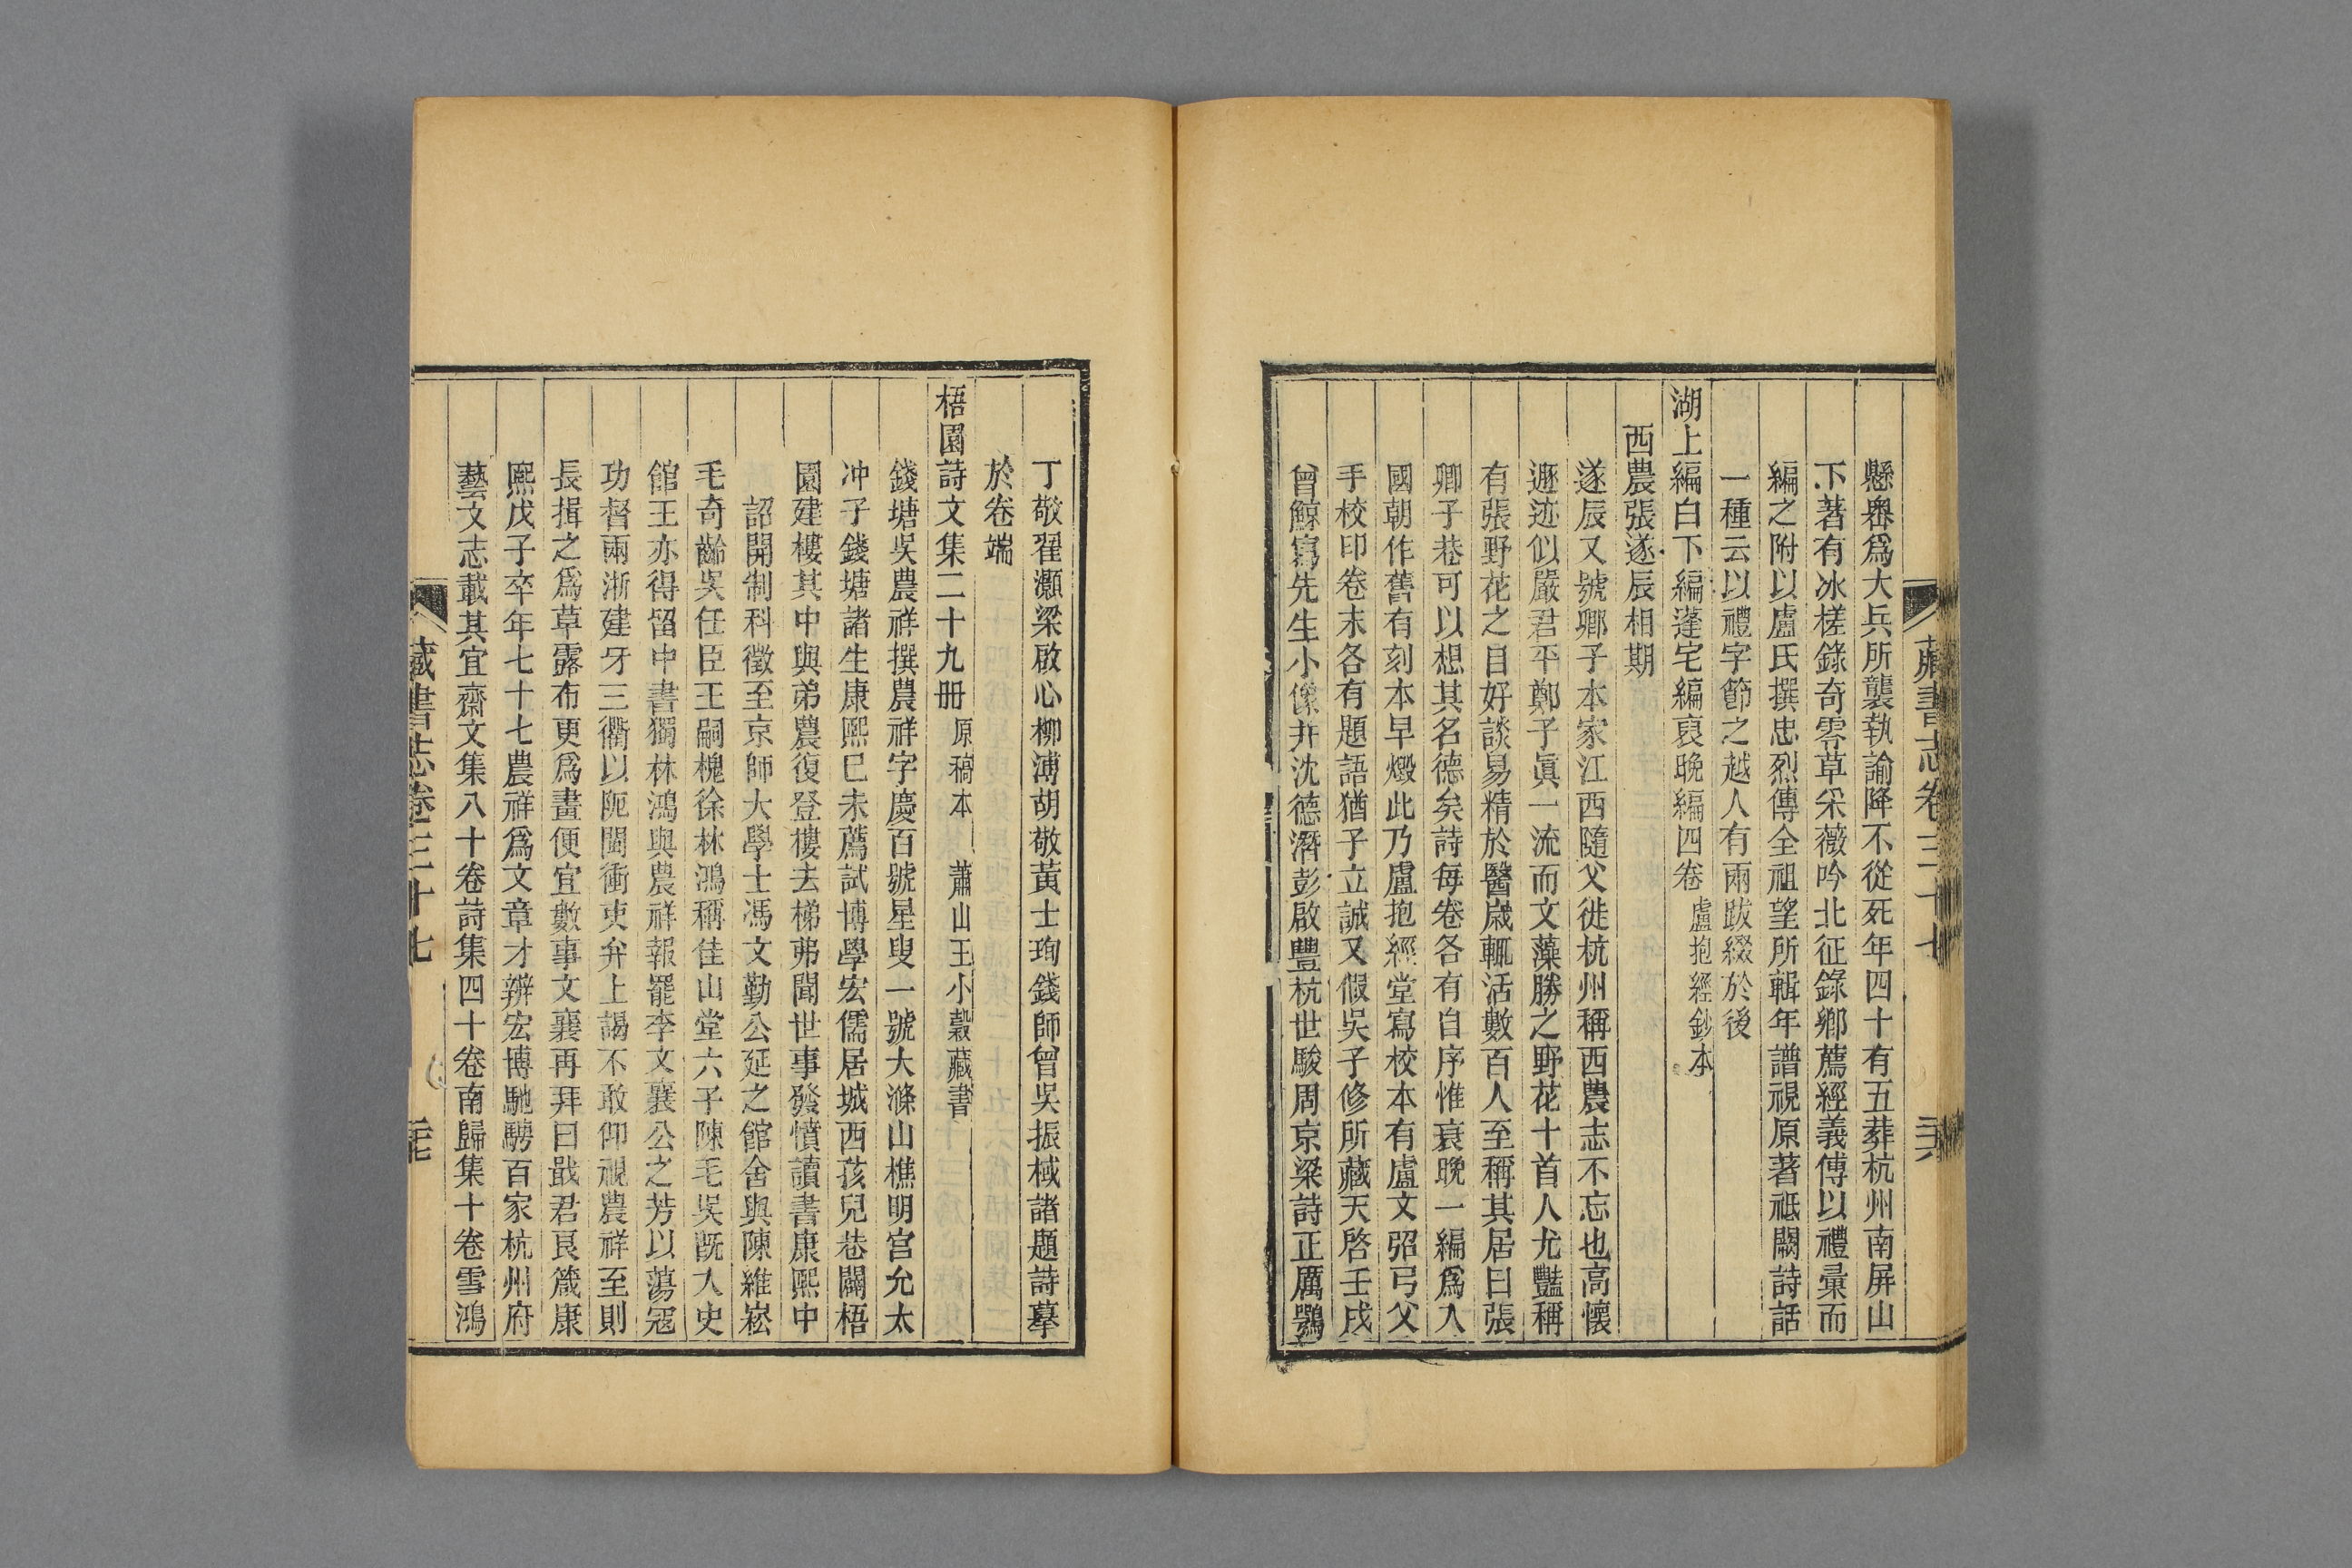 藏書志卷三十七
三六
懸嶴爲大兵所襲執諭降不從死年四十有五葬杭州南屏山
下著有冰槎錄奇零草采薇吟北征錄鄉薦經義傅以禮彙而
編之附以盧氏撰忠烈傳全祖望所輯年譜視原著祗闕詩話
一種云以禮字節之越人有兩跋綴於後
湖上編白下編蓬宅編衰晚編四卷 盧抱經鈔本
西農張遂辰相期
遂辰又號鄉子本家江西隨父徙杭州稱西農志不忘也高懷
遯迹似嚴君平鄭子眞一流而文藻勝之野花十首人尤豔稱
有張野花之目好談易精於醫歲輒活數百人至稱其居曰張
卿子巷可以想其名德矣詩每卷各有自序惟衰晚一編爲入
國朝作舊有刻本早燬此乃盧抱經堂寫校本有盧文弨弓父
手校印卷末各有題語猶子立誠又假吳子修所藏天啓壬戌
曾鯨寫先生小像幷沈德潛彭啟豐杭世駿周京梁詩正厲鶚
丁敬翟灝梁啟心柳溥胡敬黃士珣錢師曾吳振棫諸題詩摹
於卷端
梧園詩文集二十九册 原稿本 蕭山王小穀藏書
錢塘吳農祥撰農祥字慶百號星叟一號大滌山樵明宮允太
冲子錢塘諸生康熙己未薦試博學宏儒居城西荄兒巷闢梧
園建樓其中與弟農復登樓去梯弗聞世事發憤讀書康熙中
詔開制科徵至京師大學士馮文勤公延之館舍與陳維崧
毛奇齡吳任臣王嗣槐徐林鴻稱佳山堂六子陳毛吳旣入史
館王亦得留中書獨林鴻與農祥報罷李文襄公之芳以蕩寇
功督兩浙建牙三衢以阨閩衝吏弁上謁不敢仰視農祥至則
長揖之爲草露布更爲畫便宜數事文襄再拜曰戢君良箴康
熙戊子卒年七十七農祥爲文章才辨宏博馳騁百家杭州府
藝文志載其宜齋文集八十卷詩集四十卷南歸集十卷雪鴻
藏書志卷三十七
三七